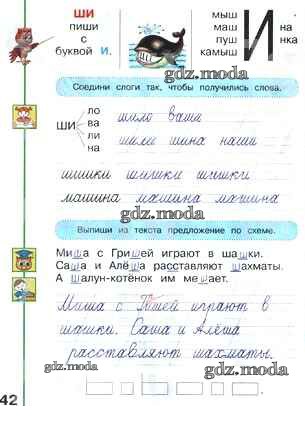 ШИ
пиши
с
буквой И.
мыш
маш
пуш
камыш
И
на
нка
gdz.moda
gdz.moda
Соедини слоги так, чтобы получились слова.
ШИ
ло
ва
ли
на
шило ваши
шили шина наши
шишки шишки шишки
машина машина машина
gdz.moda
Выпиши из текста предложение по схеме.
Миша с Гришей играют в шашки.
Саша и Алёша расставляют шахматы.
А Шалун-котёнок им мешает.
gdz.moda
Миша с Гришей играют в
шашки. Саша и Алёша
расставляют шахматы.
42
gdz.moda